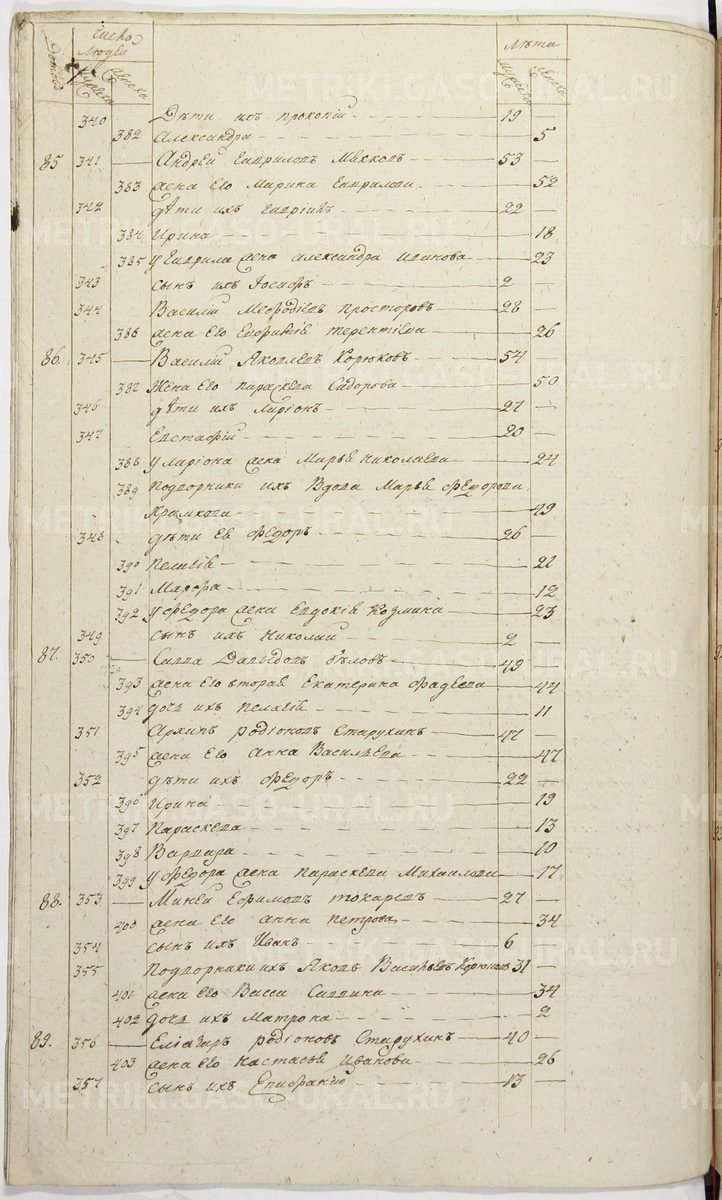 Число людей Лѣта
домовъ мужеска женска мужеска женска
340 Дѣти ихъ Прокопій 19
382 Александра 5
85 341 Андрей Гавриловъ 53
383 жена его Марина Гаврилова 52
342 дѣти ихъ Гавріилъ 22
384 Ирина 18
385 у Гаврила жена Александра Иванова 23
343 сынъ ихъ Іосифъ 2
344 Василій Меѳодіевъ Просторовъ 28
386 жена его Евфимія Терентіева 26
86 345 Василій Яковлевъ Корюковъ 54
387 Жена его Параскева Сидорова 50
346 дѣти ихъ Ларіонъ 27
347 Евстафій 20
388 у Ларіона жена Марья Николаева 24
389 Подворники ихъ Вдова Марья Федорова
49
348 дѣти ея Федоръ 26
390 Пелагія 21
391 Марфа 12
392 у Федора жена Евдокія Козмина 23
349 сынъ ихъ Николай 2
87. 350 Савва Давыдовъ Бѣловъ 49
393 жена его вторая Екатерина Фадеева 44
394 дочь ихъ Пелагія 11
351 Архипъ Родіоновъ Старухинъ 47
395 жена его Анна Васильева 47
352 дѣти ихъ Федоръ 22
396 Ирина 19
397 Параскева 13
398 Варвара 10
399 у Федора жена Параскева Михаилова 17
88. 353 Миней Ефимовъ Токаревъ 27
400 жена его Анна Петрова 34
354 сынъ ихъ Иванъ 6
355 Подворники ихъ Яковъ Васильевъ Корюковъ 31
401 жена его Васса Саввина 34
402 дочь ихъ Матрона 2
89. 356 Еліазаръ Родіоновъ Старухинъ 40
403 жена его Настасья Иванова 26
357 сынъ ихъ Епифаній 13
METRIKI.GASO-URAL.RU